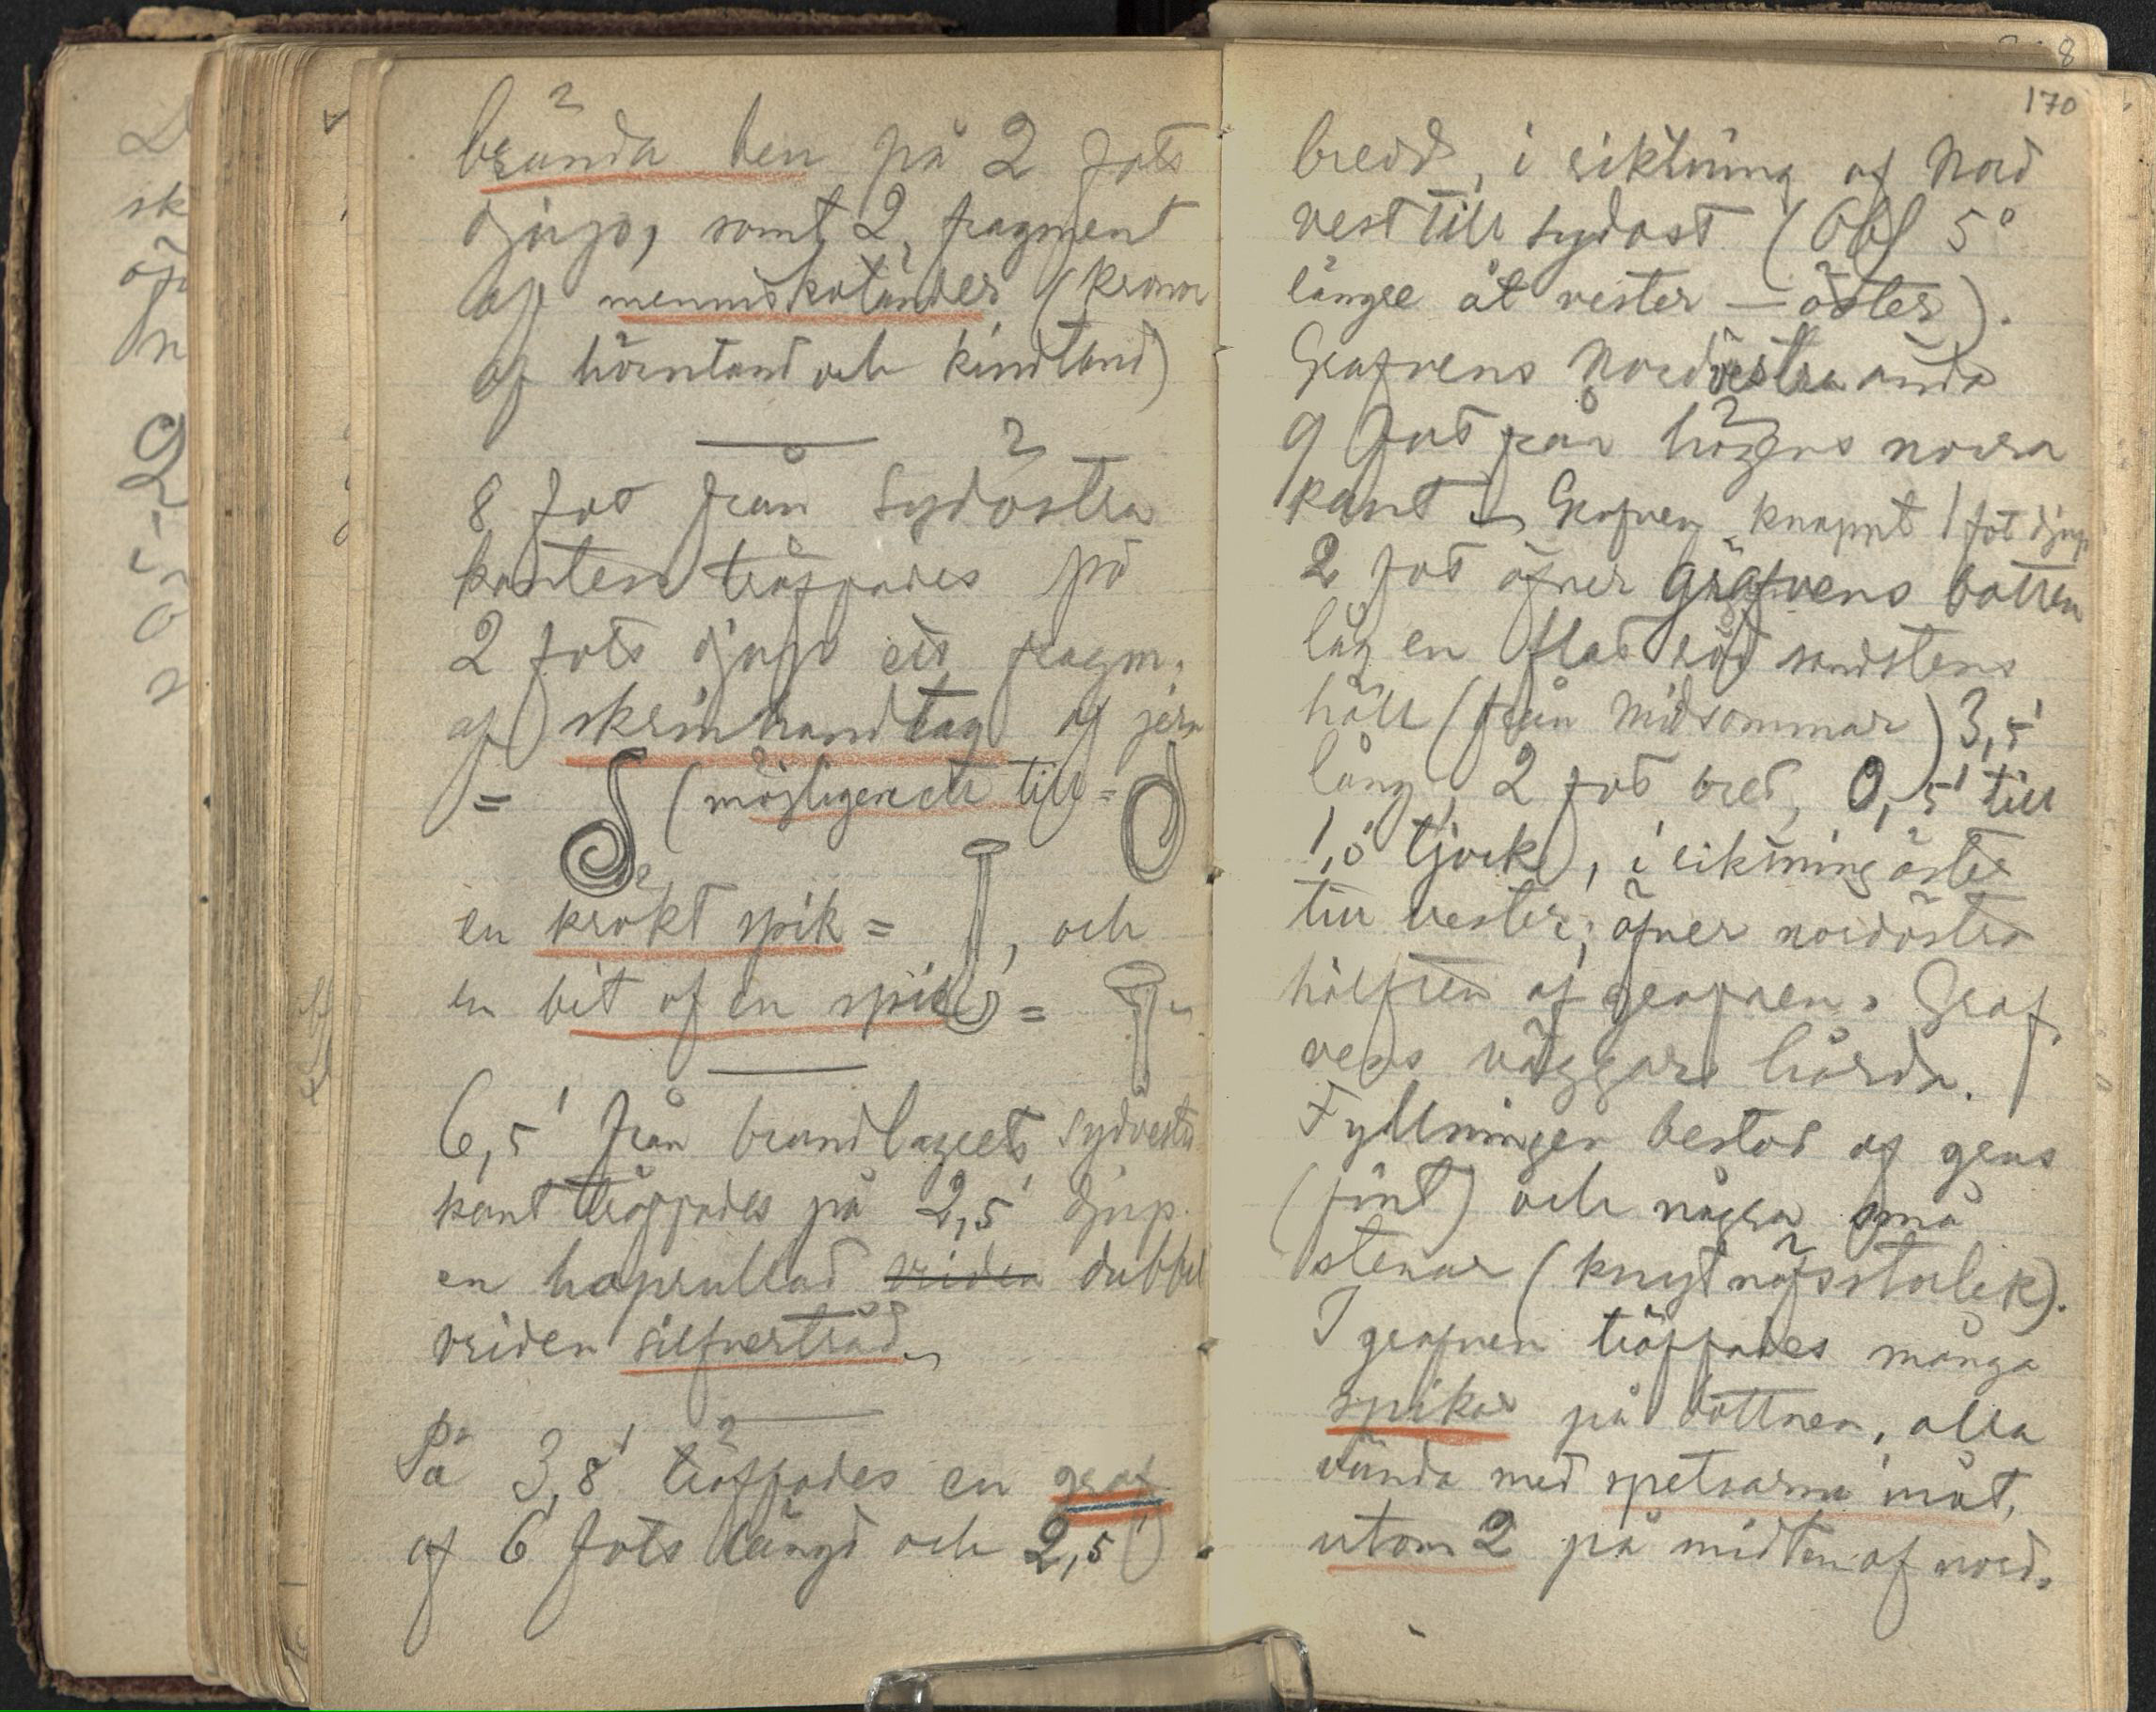 brända ben på 2 fots
djup, samt 2 fragment
af menniskotänder (krona
af hörntand och kindtand)
8 fot från sydöstra
kanten träffades på
2 fots djup ett fragm.
af skrinhandtag af jern
= (möjligen ett till =
en krökt spik = , och
en bit af en spik =
6,5' från brandlagrets sydvestra
kant träffades på 2,5' djup
en hoprullad vriden dubbel
vriden silfvertråd
På 3,8' träffades en graf
af 6 fots längd och 2,5'
170
bredd, i riktning af Nord
vest till sydost (Obs 5°
längre åt vester — öster).
Grafvens Nordvestra ända
9 fot från högens norra
kant. Grafven knappt 1 fot djup
2 fot öfver grafvens botten
låg en flat röd sandstens
häll (från Midsommar) 3,5'
lång, 2 fot bred, 0,5' till
tjock, i riktning öster
till vester, öfver nordöstra
hälften af grafven. Graf
vens väggar hårda.
Fyllningen bestod af grus
(fint) och några små
stenar (knytnäfsstorlek).
I grafven träffades många
spikar på bottnen, alla
vända med spetsarna inåt,
utom 2 på midten af nord.